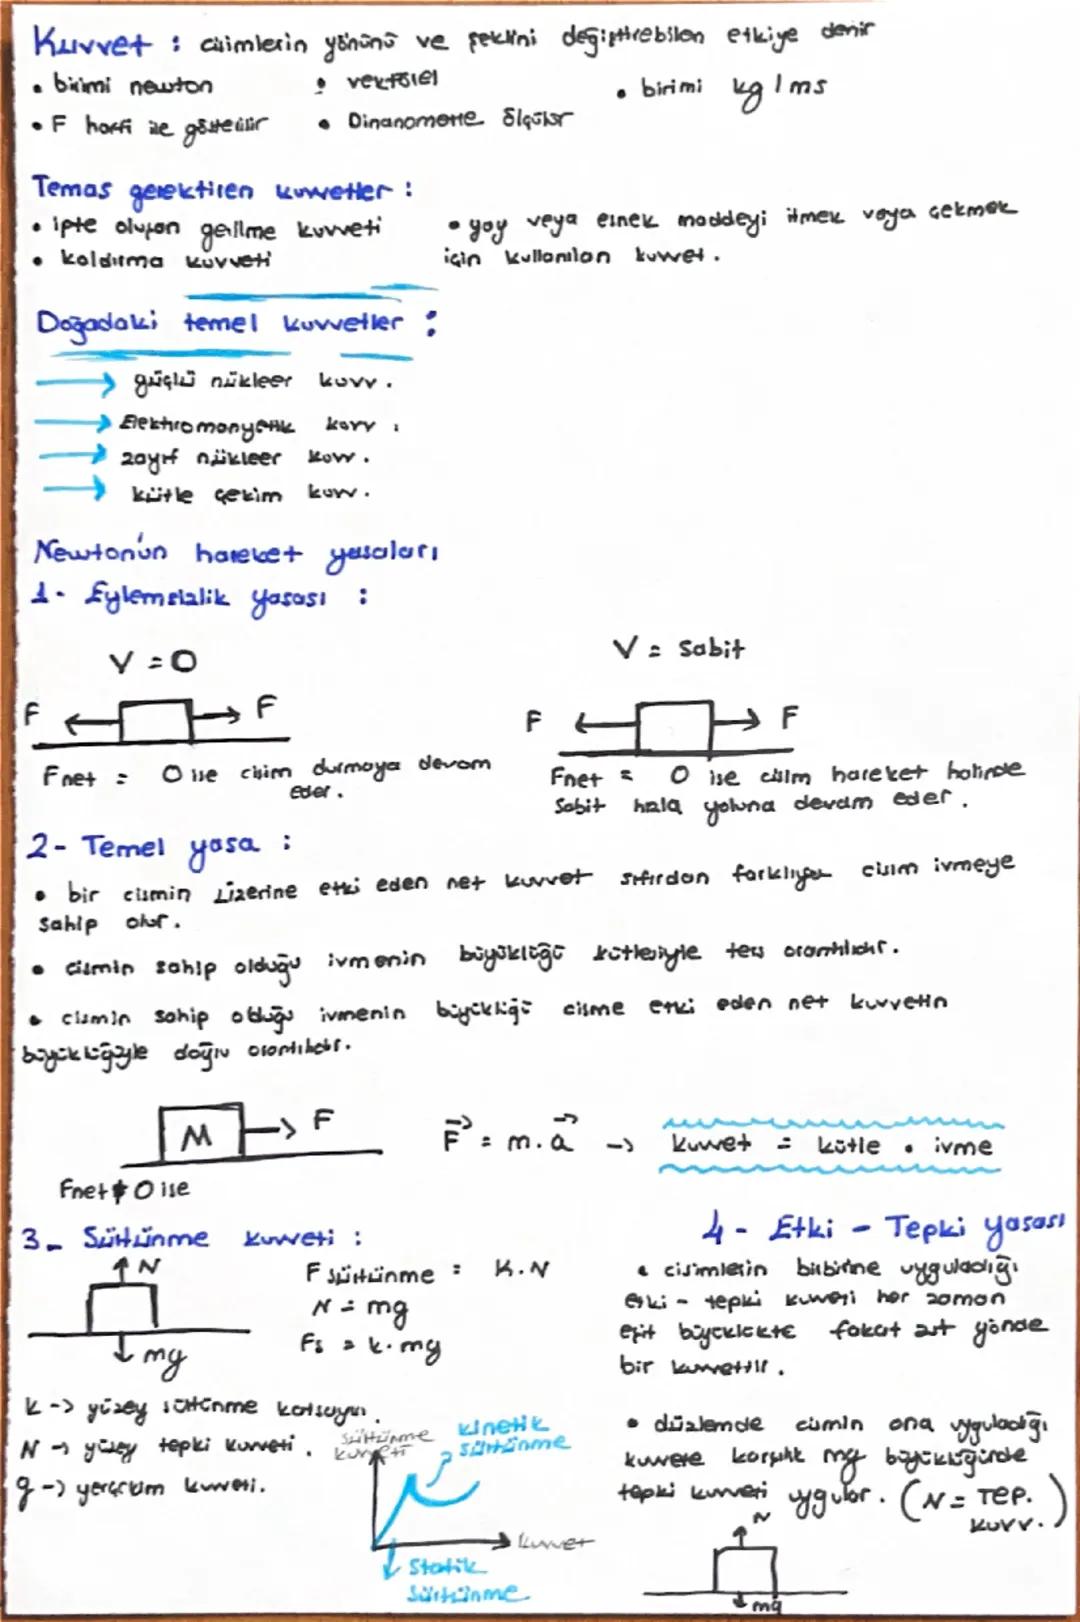 Kuvvet : cisimlerin yönünü ve şeklini değiştirebilen etkiye denir
• birimi newton • vektörel • birimi kg / ms
• F harfi ile gösterilir • Dinanometre ölçülür
Temas gerektiren kuvvetler :
• ipte oluşan gerilme kuvveti • yay veya esnek maddeyi itmek veya çekmek
• kaldırma kuvveti için kullanılan kuvvet .
Doğadaki temel kuvvetler :
→ güçlü nükleer kuvv .
→ Elektromanyetik kuvv .
→ zayıf nükleer kuvv .
→ kütle çekim kuvv .
Newton'un hareket yasaları
1- Eylemsizlik yasası :
V = 0 V = Sabit
F F F F
Fnet = 0 ise cisim durmaya devam Fnet = 0 ise cisim hareket halinde
eder . Sabit hızla yoluna devam eder .
2- Temel yasa :
• bir cismin üzerine etki eden net kuvvet sıfırdan farklıysa cisim ivmeye
sahip olur .
• cismin sahip olduğu ivmenin büyüklüğü kütlesiyle ters orantılıdır .
• cismin sahip olduğu ivmenin büyüklüğü cisme etki eden net kuvvetin
büyüklüğüyle doğru orantılıdır .
M F F = m . a → kuvvet = kütle . ivme
Fnet ≠ 0 ise
3- Sürtünme kuvveti :
N
mg
F sürtünme = K.N
N = mg
Fs = k.mg
k → yüzey sürtünme katsayısı .
N → yüzey tepki kuvveti .
g → yerçekim kuvveti .
Sürtünme
kuvveti
kinetik
sürtünme
kuvvet
Statik
Sürtünme
4- Etki - Tepki yasası
• cisimlerin birbirine uyguladığı
etki - tepki kuvveti her zaman
eşit büyüklükte fakat zıt yönde
bir kuvvettir .
• düzlemde cismin ona uyguladığı
kuvvete karşılık mg büyüklüğünde
tepki kuvveti uygular . ( N = TEP.
KUVV. )
N
mg